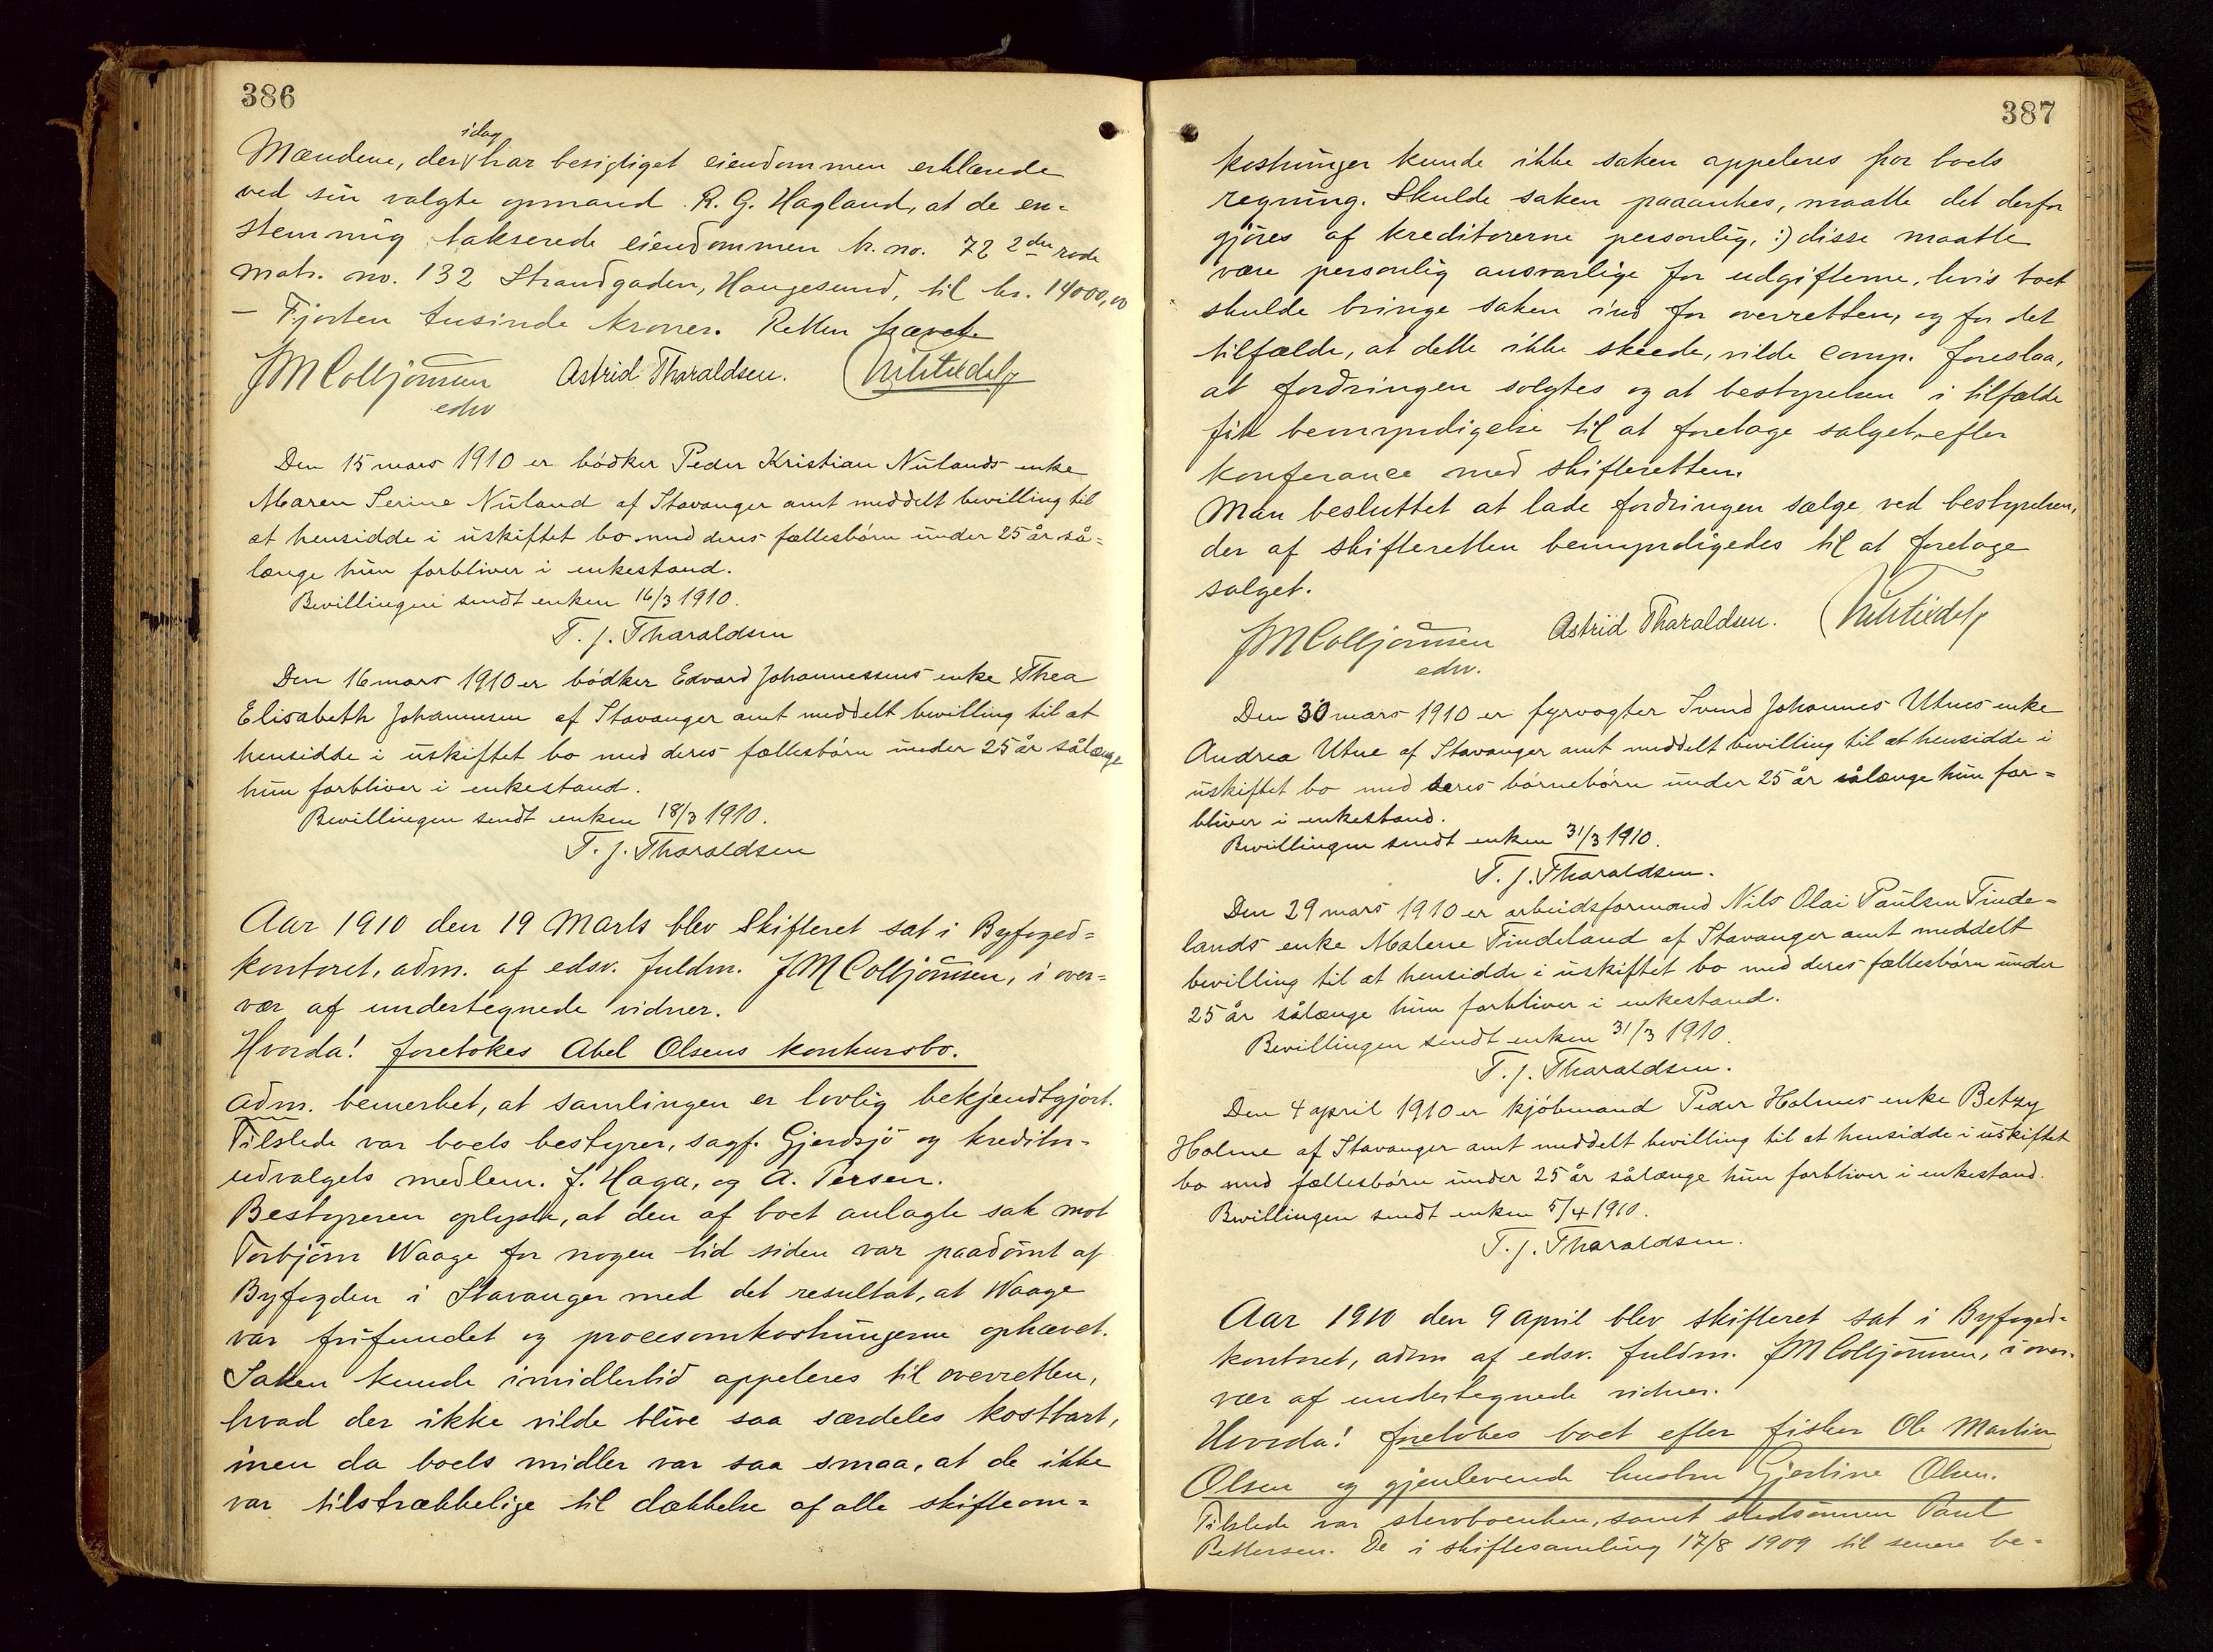 386
idag
Mændene, der har besigtiget eiendommen erklærede
ved sin valgte opmand R. G. Hagland, at de en-
stemmig takserede eiendommen br. no. 72 2den rode
matr. no. 132 Strandgaden, Haugesund, til kr. 14000,00
- Fjorten tusinde kroner. Retten hævet.
JMColbjørnsen Astrid Tharaldsen.
edsv
Den 15 mars 1910 er bødker Peder Kristian Nulands enke
Maren Serine Nuland af Stavanger amt meddelt bevilling til
at hensidde i uskiftet bo med deres fællesbørn under 25 år så-
længe hun forbliver i enkestand.
Bevillingen sendt enken 16/3 1910.
T. J. Tharaldsen
Den 16 mars 1910 er bødker Edvard Johannessens enke Thea
Elisabeth Johannesen af Stavanger amt meddelt bevilling til at
hensidde i uskiftet bo med deres fællesbørn under 25 år sålænge
hun forbliver i enkestand.
Bevillingen sendt enken 18/3 1910.
T. J. Tharaldsen
Aar 1910 den 19 Marts blev Skifteret sat i Byfoged-
kontoret, adm. af edsv. fuldm. JMColbjørnsen, i over-
vær af undertegnede vidner.
Hvorda! foretokes Abel Olsens konkursbo.
Adm. bemerket, at samlingen er lovlig bekjendtgjort.
Tilstede var boets bestyrer, sagf. Gjerdsjø og kreditor-
udvalgets medlem. J. Haga, og A. Persen.
Bestyreren oplyste, at den af boet anlagte sak mot
Torbjørn Waage for nogen tid siden var paadømt af
Byfogden i Stavanger med det resultat, at Waage
var frifundet og procesomkostningerne ophævet.
Saken kunde imidlertid appeleres til overretten,
hvad der ikke vilde blive saa særdeles kostbart,
men da boets midler var saa smaa, at de ikke
var tilstrækkelige til dækkelse af alle skifteom-
387
kostninger kunde ikke saken appeleres for boets
regning. Skulde saken paaankes, maatte det derfor
gjøres af kreditorerne personlig, :) disse maatte
være personlig ansvarlige for udgifterne, hvis boet
skulde bringe saken ind for overretten, og for det
tilfælde, at dette ikke skeede, vilde comp. foreslaa,
at fordringen solgtes og at bestyrelsen i tilfælde
fik bemyndigelse til at foretage salget efter
konferance med skifteretten.
Man besluttet at lade fordringen sælge ved bestyrelsen,
der af skifteretten bemyndigedes til at foretage
salget.
JMColbjørnsen Astrid Tharaldsen.
edsv.
Den 30 mars 1910 er fyrvogter Svend Johannes Utnes enke
Andrea Utne af Stavanger amt meddelt bevilling til at hensidde i
uskiftet bo med deres børnebørn under 25 år sålænge hun for-
bliver i enkestand.
Bevillingen sendt enken 31/3 1910.
T. J. Tharaldsen.
Den 29 mars 1910 er arbeidsformand Nils Olai Paulsen Tinde-
lands enke Malene Tindeland af Stavanger amt meddelt
bevilling til at hensidde i uskiftet bo med deres fællesbørn under
25 år sålænge hun forbliver i enkestand.
Bevillingen sendt enken 31/3 1910.
T. J. Tharaldsen.
Den 4 april 1910 er kjøbmand Peder Holmes enke Betzy
Holme af Stavanger amt meddelt bevilling til at hensidde i uskiftet
bo med fællesbørn under 25 år sålænge hun forbliver i enkestand.
Bevillingen sendt enken 5/4 1910.
T. J. Tharaldsen.
Aar 1910 den 9 april blev skifteret sat i Byfoged-
kontoret, adm af edsv. fuldm. JMColbjørnsen, i over-
vær af undertegnede vidner.
Hvorda! foretokes boet efter fisker Ole Martin
Olsen og gjenlevende hustru Gjertine Olsen.
Tilstede var stervboenken, samt stedsønnen Paul
Pettersen. De i skiftesamling 17/8 1909 til senere be-